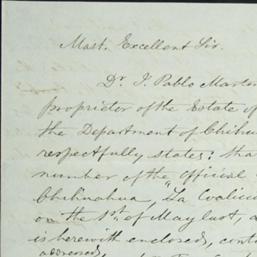 Most Excellent Sir.
Dr. J. Pablo Marti
proprietor of the Estate of
the Department of Chihu
respectfully states: tha
number of the official
Chihuahua, "La Coalici
on the 1st. of May last, a
is herewith enclosed, cont